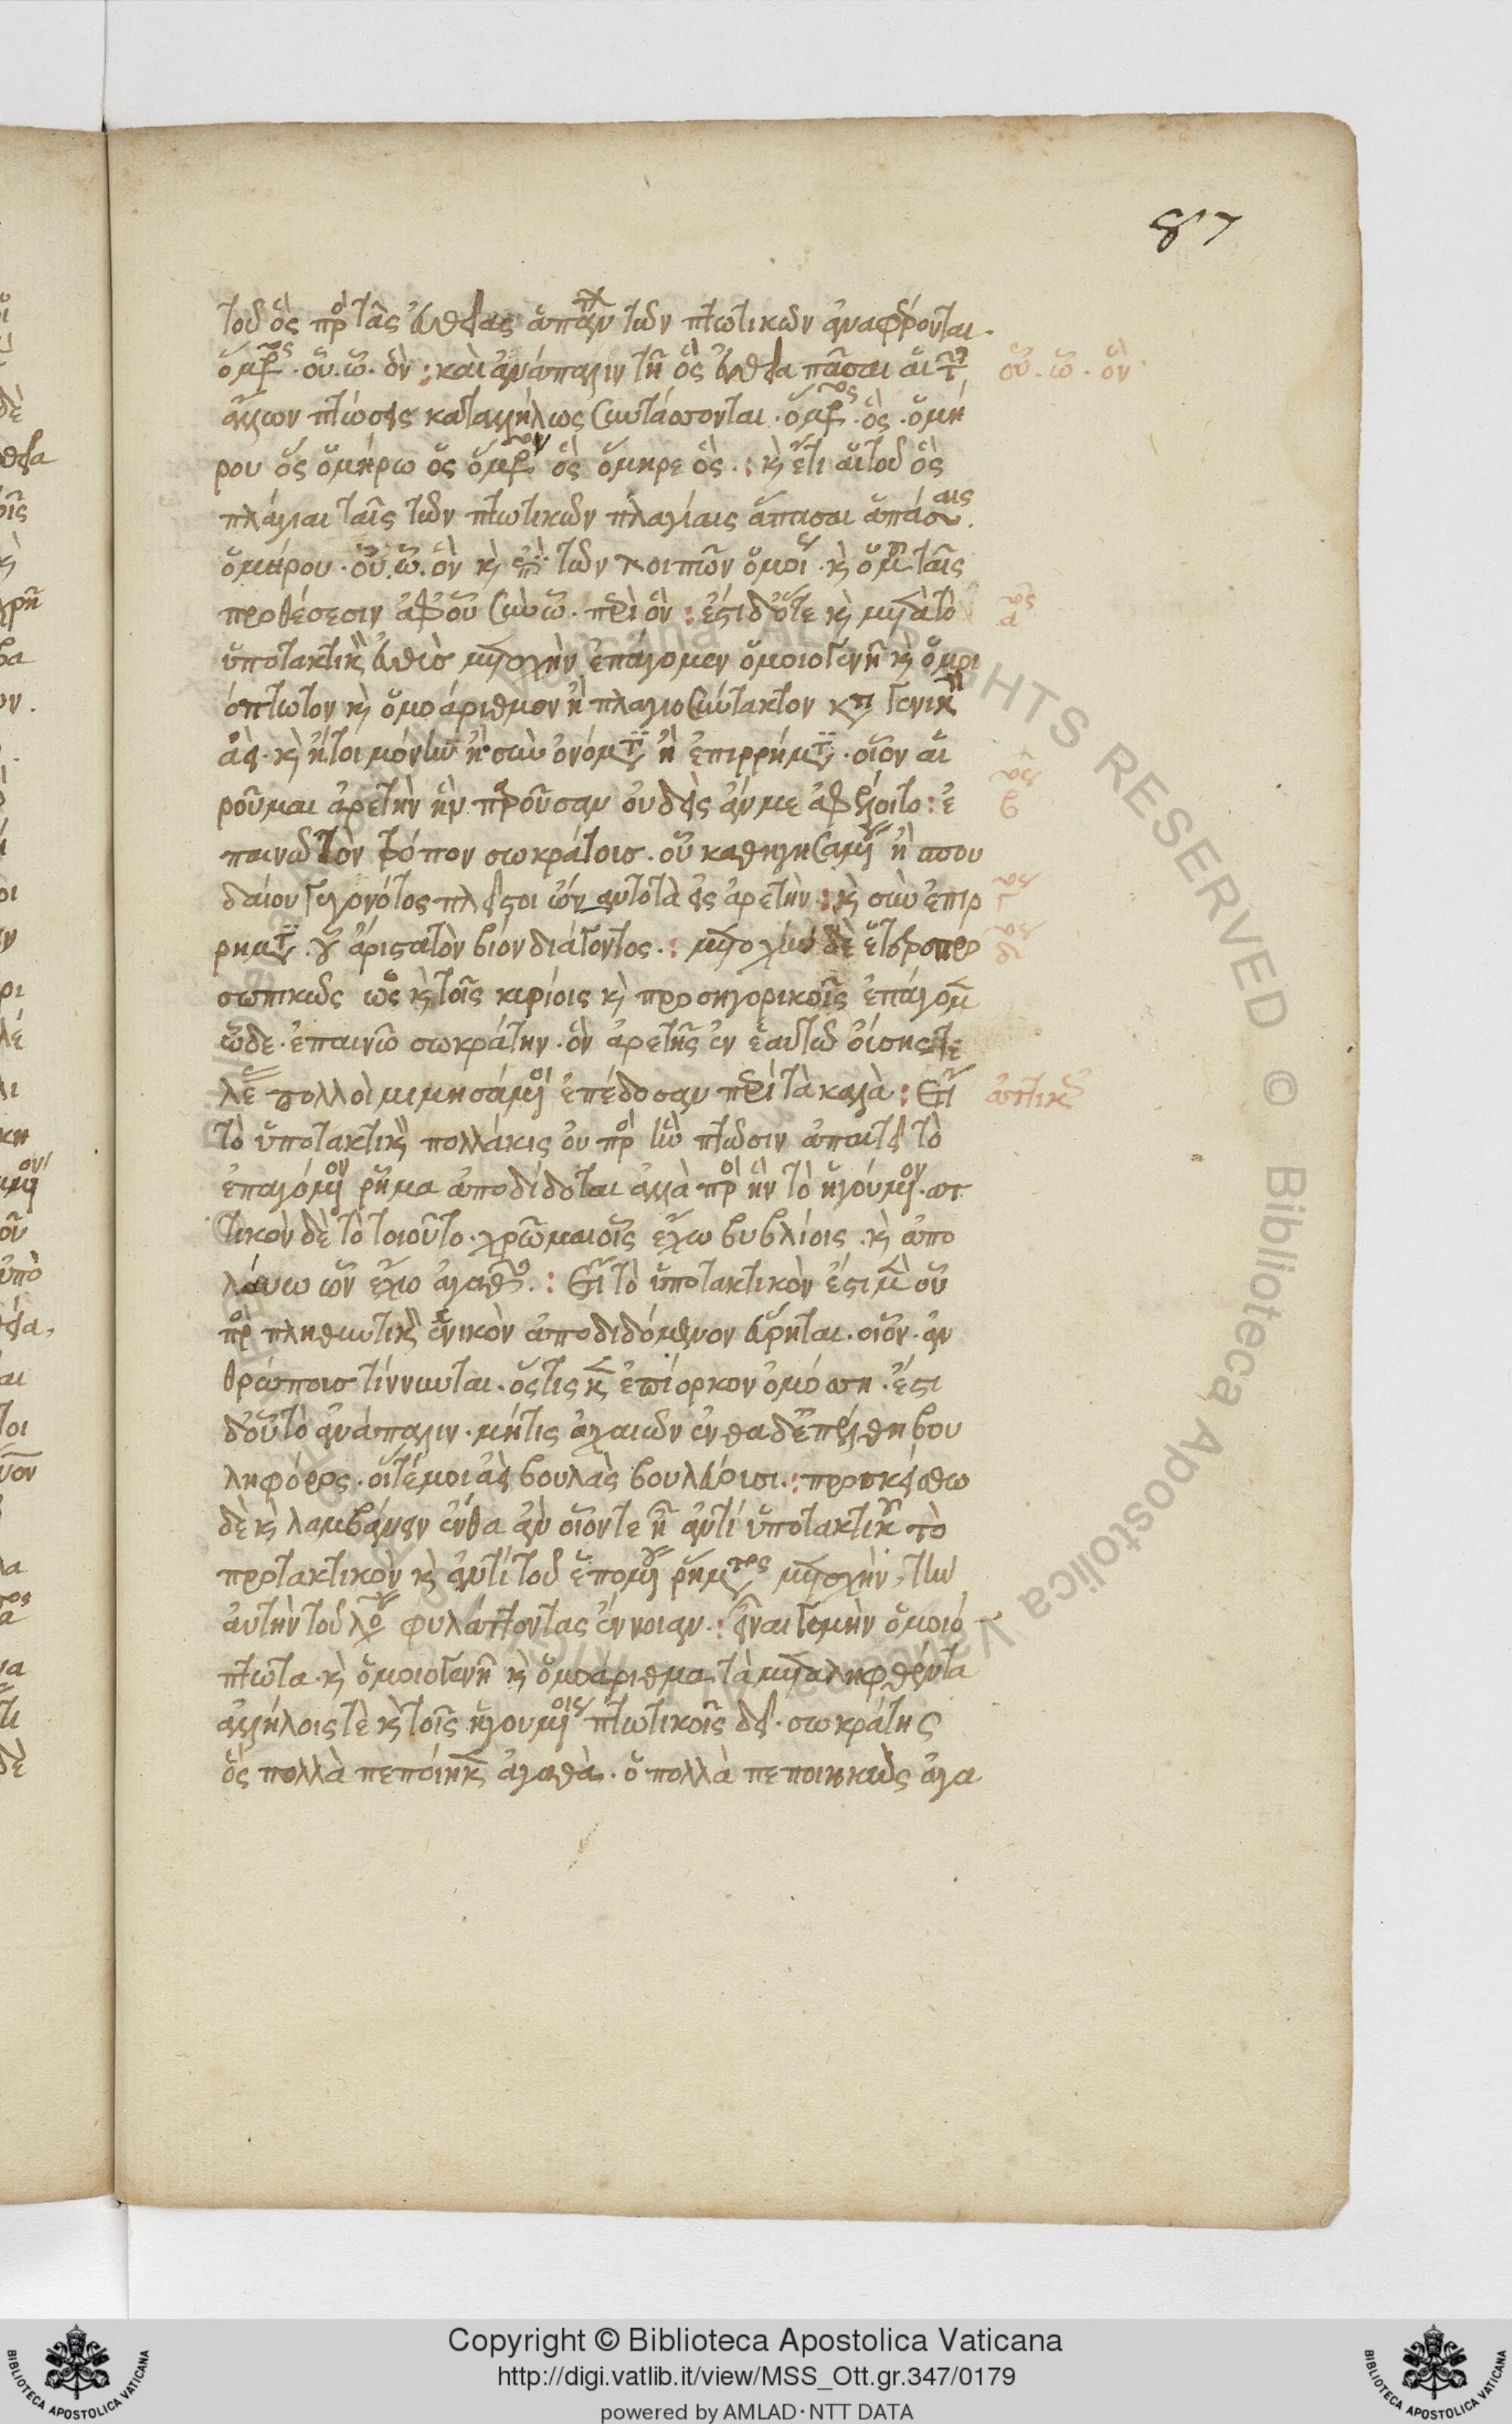 87
τοῦ ὃς πρὸς τὰς εὐθείας ἁπάντων τῶν πτωτικῶν ἀναφέρονται.
ὅμηρος. οὗ. ᾧ. ὃν: καὶ ἀνάπαλιν τῆ ὃς εὐθεία πᾶσαι αἱ τῶν
οὗ. ᾧ. ὃν
ἄλλων πτώσεις καταλλήλως συντάσσονται. ὅμηρος. ὃς. ὁμή
ρου ὃς ὁμήρω ὃς ὅμηρον ὃς ὅμηρε ὃς.: καὶ ἔτι αἱ τοῦ ὃς
πλάγιαι ταῖς τῶν πτωτικῶν πλαγίαις ἅπασαι ἁπάσαις.
ὁμήρου. οὗ. ᾧ. ὃν καὶ ἐπὶ τῶν λοιπῶν ὁμοίως. καὶ ὁμοῦ ταῖς
προθέσεσιν ἀφ οὗ σὺν ᾧ. περὶ ὃν: ἔστι δ ὅτε καὶ μετὰ τὸ
ὑποτακτικὸν εὐθὺς μετοχὴν ἐπάγομεν ὁμοιογενῆ καὶ ὁμοι
όπτωτον καὶ ὁμοάριθμον ἢ πλαγιοσύντακτον κατὰ γενικὴν
ἀεὶ. καὶ ἤτοι μόνην ἢ σὺν ὀνόματι ἢ ἐπιρρήματι. οἷον αἱ
ροῦμαι ἀρετὴν ἣν παροῦσαν οὐδεὶς ἄν με ἀφέλοιτο: ἐ
παινῶ τὸν τρόπον σωκράτους. οὗ καθηγησαμένου ἢ σπου
δαίου γεγονότος πλεῖστοι ὧν αὐτοτὰ εἰς ἀρετὴν: καὶ σὺν ἐπιρ
ρήματι. οὗ ἄριστα τὸν βίον διάγοντος.: μετοχὴν δὲ ἑτεροπρο
σωπικῶς ὡς καὶ τοῖς κυρίοις καὶ προσηγορικοῖς ἐπάγομεν
ὧδε. ἐπαινῶ σωκράτην. ὃν ἀρετῆς ἐν ἑαυτῶ οἴσης τε
λέως πολλοὶ μιμησάμενοι ἐπέδοσαν περὶ τὰ καλὰ: ἔτι
ἀττικῶς
τὸ ὑποτακτικὸν πολλάκις οὐ πρὸς ἣν πτῶσιν ἀπαιτεῖ τὸ
ἐπαγόμενον ῥῆμα ἀποδίδοται ἀλλὰ πρὸς ἣν τὸ ἡγούμενον. ἀτ
τικὸν δὲ τὸ τοιοῦτο. χρῶμαι οἷς ἔχω βυβλίοις. καὶ ἀπο
λαύω ὧν ἔχω ἀγαθῶν.: ἔτι τὸ ὑποτακτικὸν ἔστι μὲν οὗ
πρὸς πληθυντικὸν ἑνικὸν ἀποδιδόμενον εὕρηται. οἷον. ἀν
θρώπους τίννυνται. ὅστις κεν ἐπίορκον ὀμόσση. ἔστι
δ οὗ τὸ ἀνάπαλιν. μήτις ἀχαιῶν ἐνθάδ ἐπέλθη βου
ληφόρος. οἵτέ μοι ἀεὶ βουλὰς βουλεύουσι.: προσκείσθω
δὲ καὶ λαμβάνειν ἔνθα ἂν οἷόντε ᾖ ἀντὶ ὑποτακτικοῦ τὸ
προτακτικὸν καὶ ἀντὶ τοῦ ἑπομένου ῥήματος μετοχὴν, τὴν
αὐτὴν τοῦ λόγου φυλάττοντας ἔννοιαν.: εἶναι γε μὴν ὁμοιό
πτωτα. καὶ ὁμοιογενῆ καὶ ὁμοάριθμα τὰ μεταληφθέντα
ἀλλήλοις τὲ καὶ τοῖς ἡγουμένοις πτωτικοῖς δεῖ. σωκράτης
ὃς πολλὰ πεποίηκεν ἀγαθὰ. ὁ πολλὰ πεποιηκὼς ἀγα
Copyright © Biblioteca Apostolica Vaticana
http://digi.vatlib.it/view/MSS_Ott.gr.347/0179
powered by AMLAD·NTT DATA